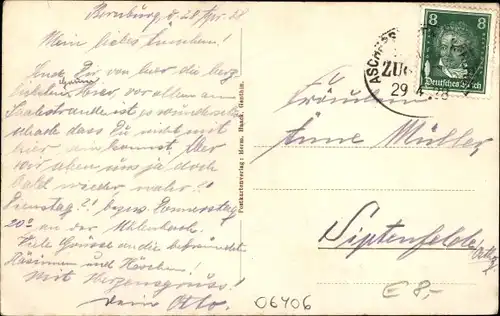 Bernburg, d. 28 Apr. 28
Mein liebes Ennchen!
Sende Dir von hier die herz
lichsten Grüsse, vor allem am
Saalestrande ist es wunderschön
schade dass Du nicht mit
hier sein kannst. Aber
wir sehen uns ja doch
bald wieder, nicht?!
Dienstag?! bezw. Donnerstag
20° an der
Viele Grüsse an die befreundet
Häsinnen und Häschen!
Mit Herzensgruss!
Dein Otto.
Postkartenverlag: Herm. Haack, Genthin.
8 8
Deutsches Reich
ASCHERS
ZUG
29.4.28
Fräulein
Änne Müller
Siptenfelde
06406
€ 8,-